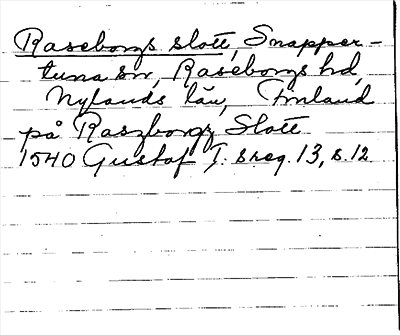 Raseborgs slott, Snapper-
tuna sn, Raseborgs hd,
Nylands län, Finland
på Raszborgz Slott
1540 Gustaf I: sreg. 13, s. 12